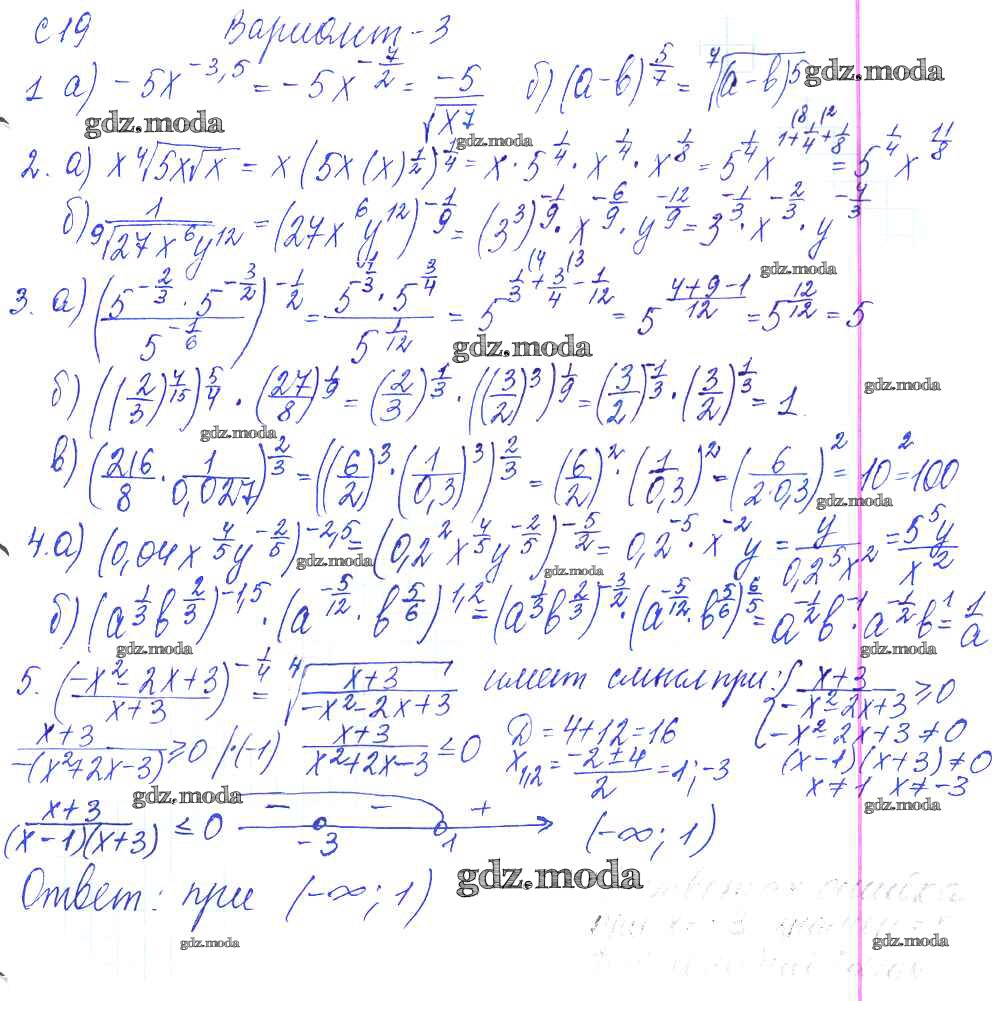 с 19 Вариант - 3
1 а) -5x^{-3,5} = -5x^{-7/2} = -5/√(x7) б) (a-b)^{5/7} = ⁷√(a-b)5
gdz.moda
gdz.moda
gdz.moda
2. а) x ⁴√(5x√x) = x (5x(x)^{1/2})^{1/4} = x · 5^{1/4} · x^{1/4} · x^{1/8} = 5^{1/4} x^{1+1/4+1/8} = 5^{1/4} x^{11/8}
б) 1/⁹√(27x⁶y¹²) = (27x⁶y¹²)^{-1/9} = (3³)^{-1/9} · x^{-6/9} · y^{-12/9} = 3^{-1/3} · x^{-2/3} · y^{-4/3}
gdz.moda
3. а) ((5^{-2/3} · 5^{-3/2})/5^{-1/6})^{-1/2} = (5^{1/3} · 5^{3/4})/5^{1/12} = 5^{1/3+3/4-1/12} = 5^{(4+9-1)/12} = 5^{12/12} = 5
gdz.moda
б) ((2/3)^{4/15})^{5/4} · (27/8)^{1/9} = (2/3)^{1/3} · ((3/2)³)^{1/9} = (3/2)^{-1/3} · (3/2)^{1/3} = 1.
gdz.moda
gdz.moda
в) (216/8 · 1/0,027)^{2/3} = ((6/2)³ · (1/0,3)³)^{2/3} = (6/2)² · (1/0,3)² = (6/(2·0,3))² = 10² = 100
gdz.moda
4. а) (0,04x^{4/5}y^{-2/5})^{-2,5} = (0,2² x^{4/5} y^{-2/5})^{-5/2} = 0,2^{-5} · x^{-2} y = y/(0,2⁵x²) = 5⁵y/x²
gdz.moda
gdz.moda
б) (a^{1/3}b^{2/3})^{-1,5} · (a^{-5/12} · b^{5/6})^{1,2} = (a^{1/3}b^{2/3})^{-3/2} · (a^{-5/12} · b^{5/6})^{6/5} = a^{-1/2}b^{-1} · a^{-1/2}b^{1} = 1/a
gdz.moda
gdz.moda
5. ((-x²-2x+3)/(x+3))^{-1/4} = ⁴√((x+3)/(-x²-2x+3)) имеет смысл при: { (x+3)/(-x²-2x+3) ≥ 0
-x²-2x+3 ≠ 0
(x+3)/(-(x²+2x-3)) ≥ 0 /·(-1) (x+3)/(x²+2x-3) ≤ 0 Д = 4+12 = 16 (x-1)(x+3) ≠ 0
x₁,₂ = (-2±4)/2 = 1; -3 x ≠ 1 x ≠ -3
gdz.moda
gdz.moda
(x+3)/((x-1)(x+3)) ≤ 0 - - + (-∞; 1)
-3 1
Ответ: при (-∞; 1)
gdz.moda
gdz.moda
gdz.moda